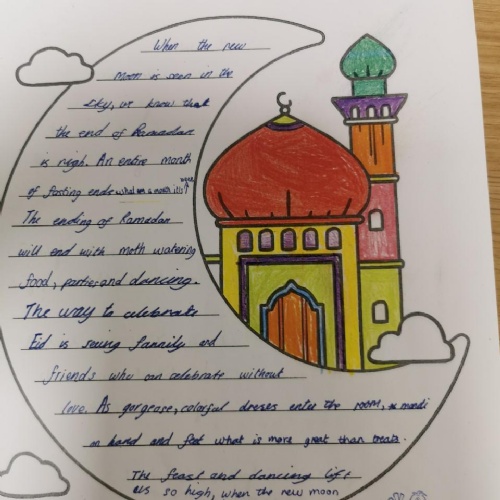 When the new
moon is seen in the
sky, we know that
the end of Ramadan
is nigh. An entire month
of fasting ends what a month
The ending of Ramadan
will end with moth watering
food, parties and dancing.
The way to celebrate
Eid is seeing family and
friends who can celebrate without
love. As gorgeose, colorful dresses enter the room,
on hand and feet what is more great than treats.
The feast and dancing lift
us so high, when the new moon